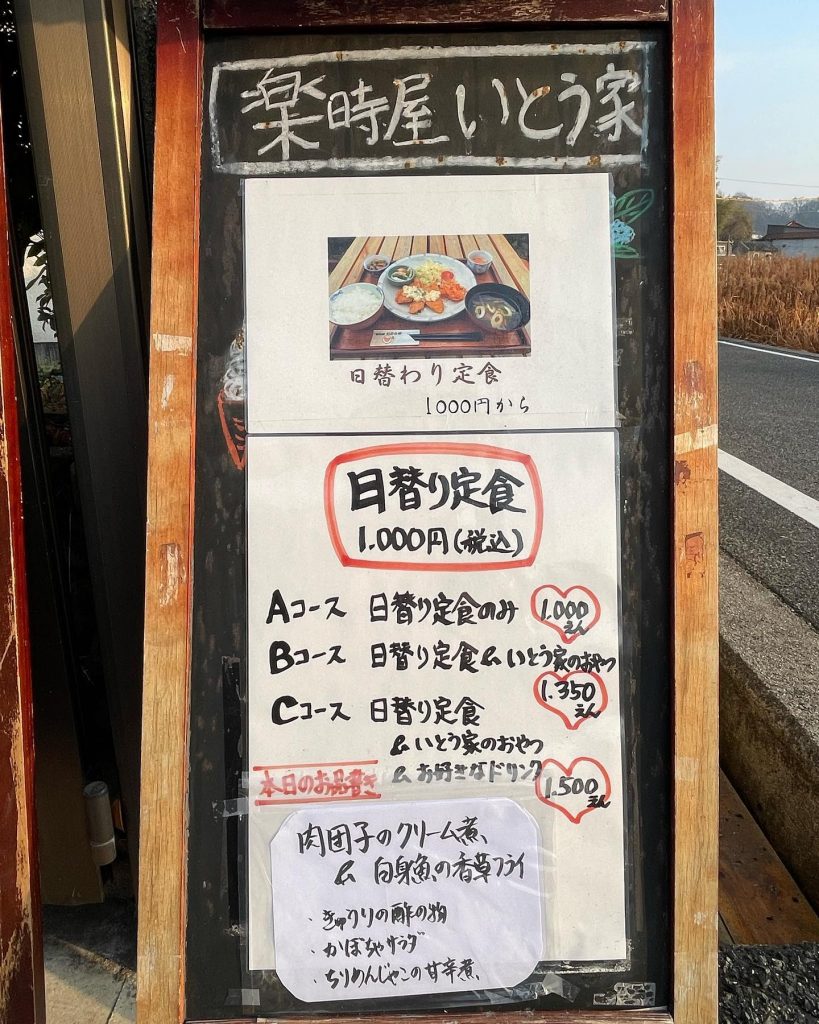 楽時屋 いとう家
日替わり定食
1000円から
日替り定食
1.000円(税込)
Aコース 日替り定食のみ 1.000えん
Bコース 日替り定食&いとう家のおやつ
1.350えん
Cコース 日替り定食
&いとう家のおやつ
&お好きなドリンク
1.500えん
本日のお品書き
肉団子のクリーム煮
& 白身魚の香草フライ
・きゅうりの酢の物
・かぼちゃサラダ
・ちりめんじゃこの甘辛煮